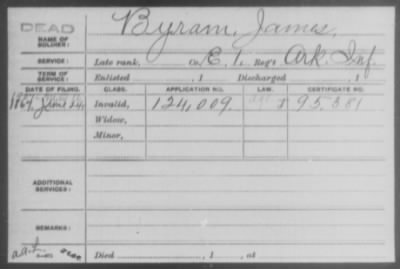 DEAD
Byram, James,
NAME OF SOLDIER:
SERVICE: Late rank, Co. E, 1, Reg't Ark. Inf.
TERM OF SERVICE: Enlisted , 1 Discharged , 1
DATE OF FILING. CLASS. APPLICATION NO. LAW. CERTIFICATE NO.
1867, June 24, Invalid, 124,009. $ 95,581
Widow,
Minor,
ADDITIONAL SERVICES:
REMARKS:
Died , 1 , at